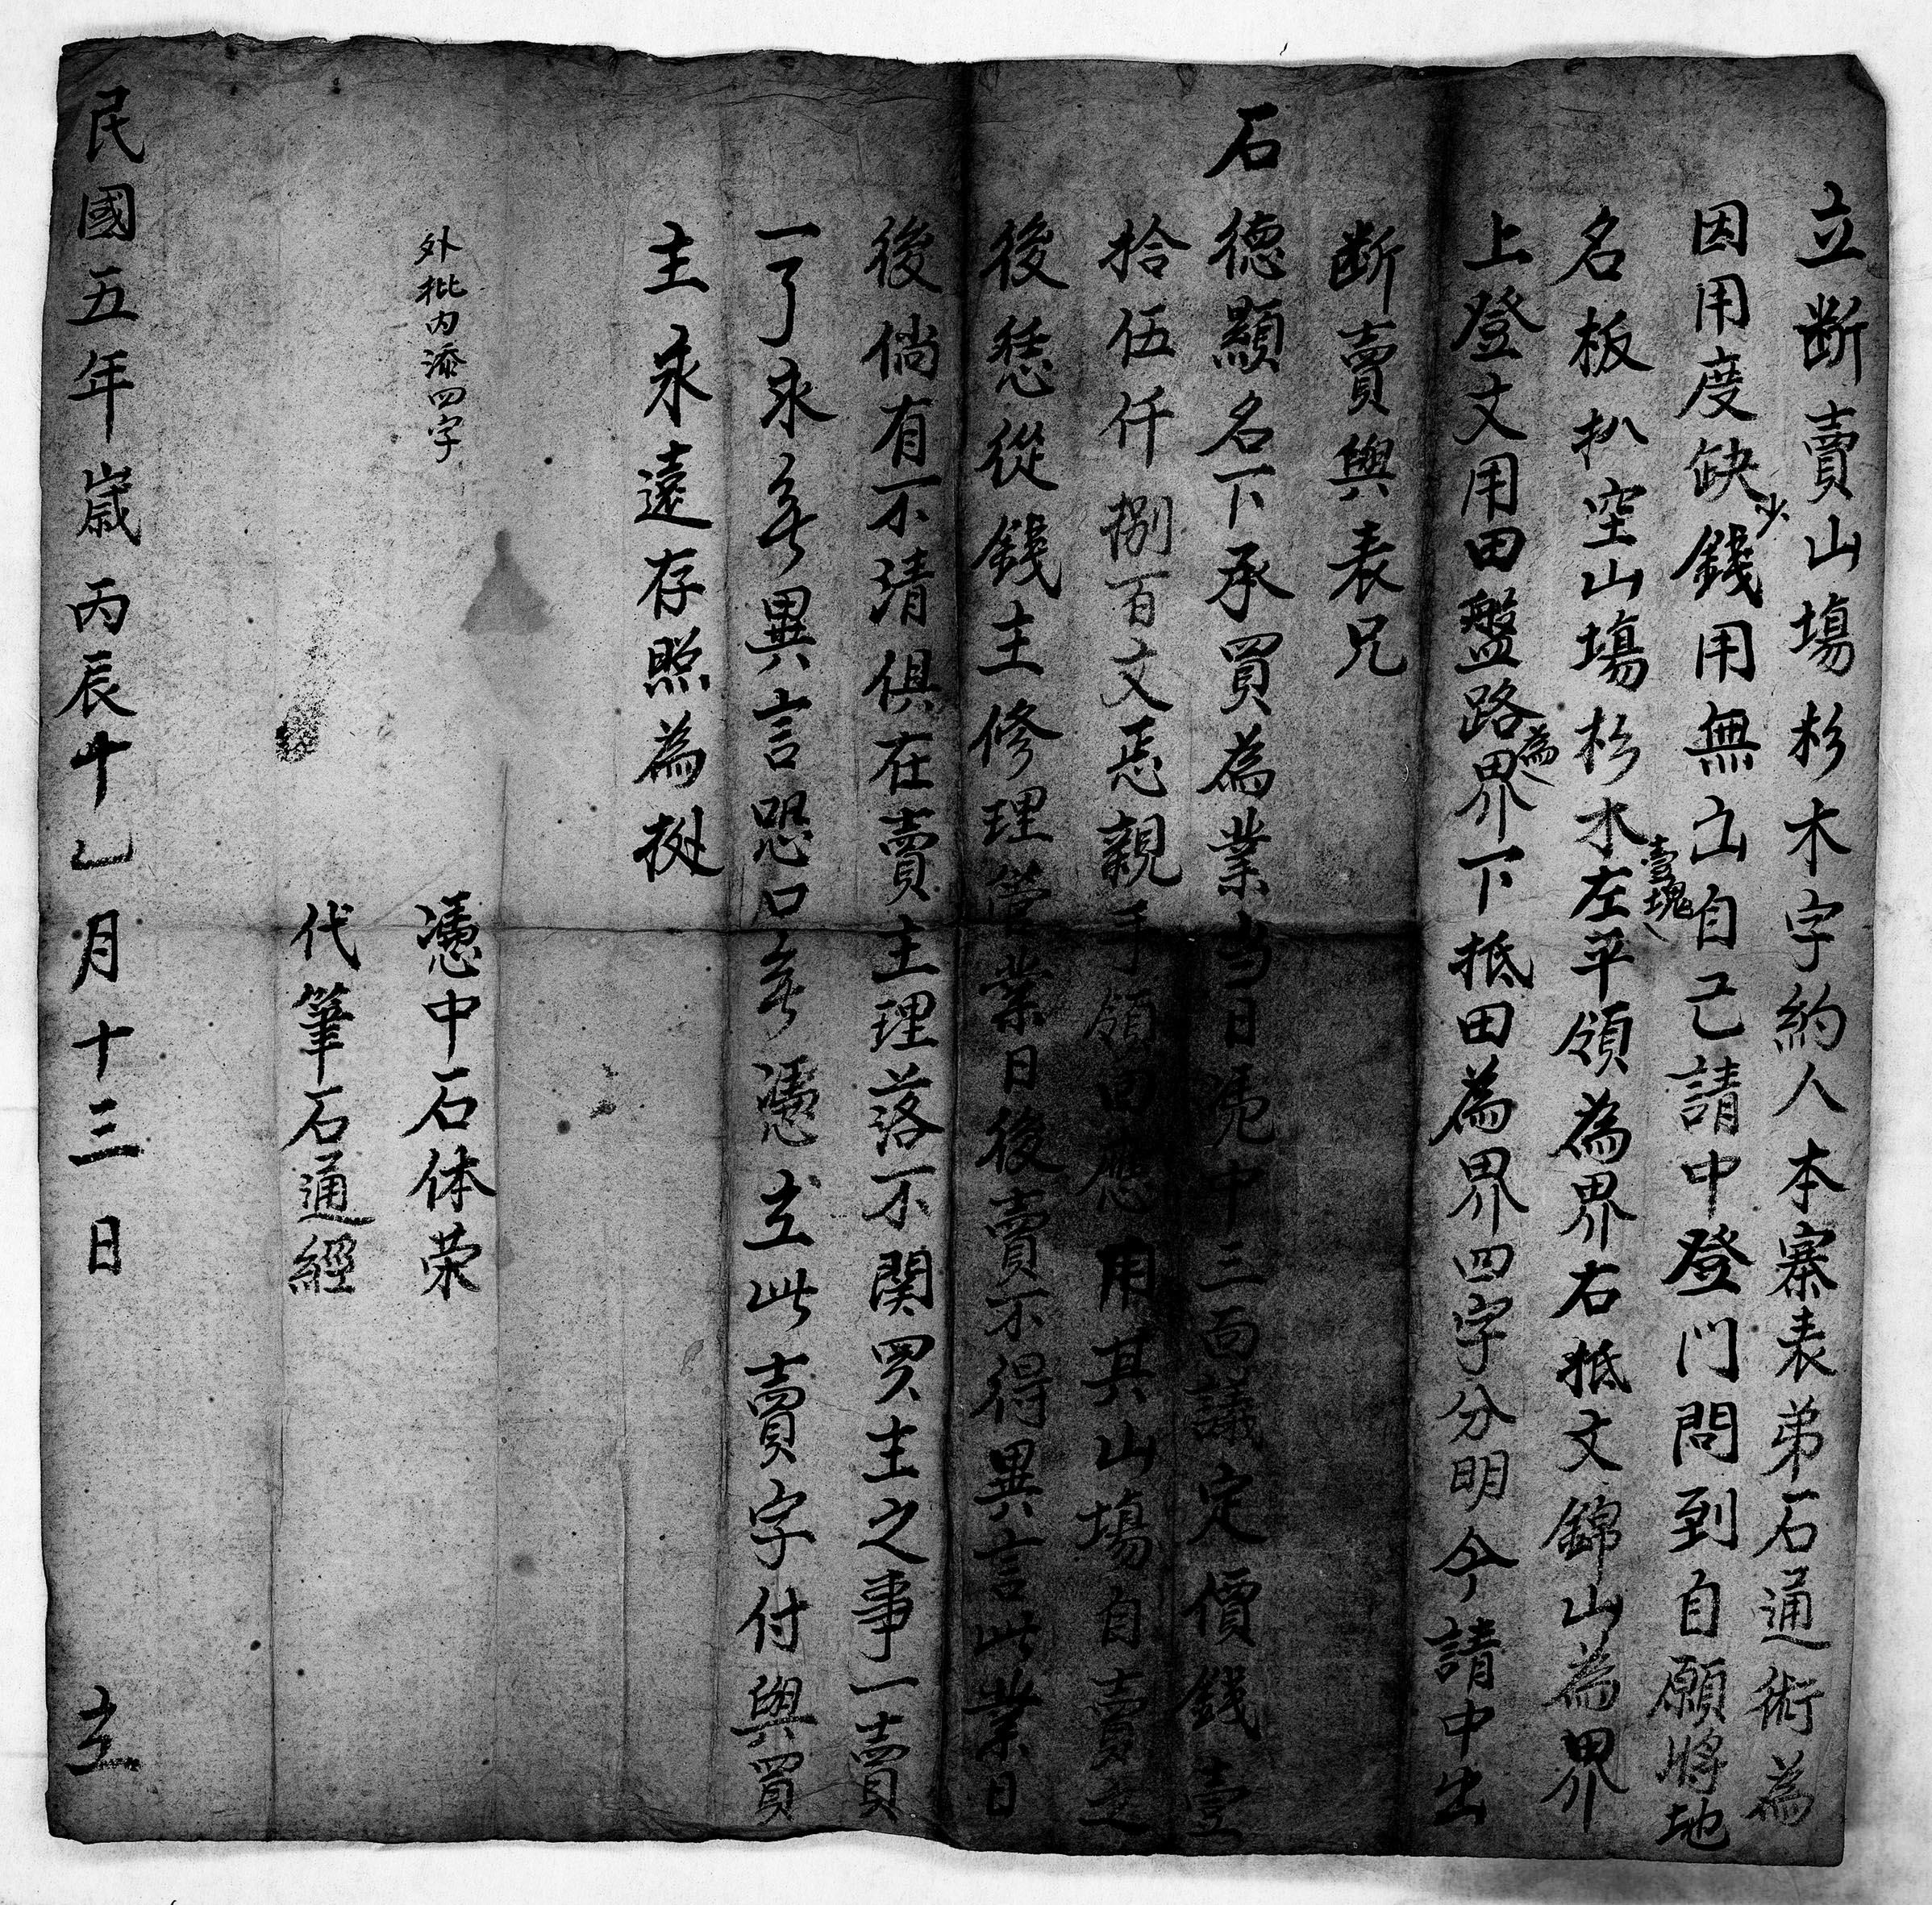 立断賣山塲杉木字約人本寨表弟石通術為
因用度缺少錢用無㐌自己請中登门問到自願將地
名板扒空山塲杉木壹塊左平領為界右抵文錦山為界
上登文用田盤路為界下抵田為界四字分明今請中出
断賣與表兄
石德顯名下承買為業当日凴中三面議定價錢壹
拾伍仟捌百文恁親手領回應用其山塲自賣之
後恁從錢主修理管業日後賣不得異言此業日
後倘有不清俱在賣主理落不関買主之事一賣
一了永無異言恐口無憑立此賣字付與買
主永遠存照為挞
外批内添四字
憑中石体荣
代筆石通經
民國五年歲丙辰十乚月十三日 立